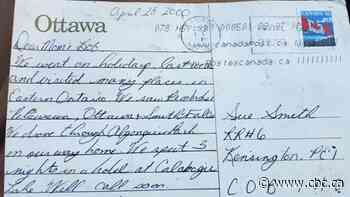 Ottawa
April 25 2000
www.canadapost.ca
postescanada.ca
Dear Mom & Bob
We went on holiday last week
and visited many places in
Eastern Ontario. We saw Pembroke
Petawawa, Ottawa & Smith Falls
We drove through Algonquin Park
on our way home. We spent 3
nights in a hotel at Calabogie
Lake Will call soon.
Sue Smith
RR#6
Kensington, PEI
C0B
www.cbc.ca